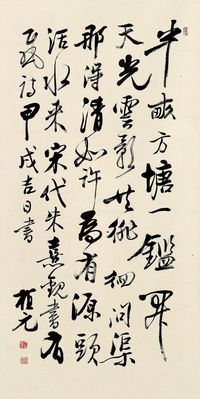 半畝方塘一鑑開
天光雲影共徘徊問渠
那得清如許為有源頭
活水来宋代朱熹觀書有
感詩甲戌吉日書
植元